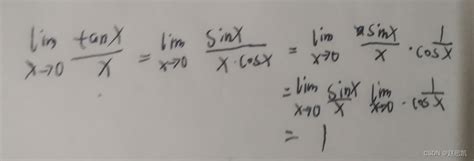 lim x→0 tanx/x = lim x→0 sinx/(x·cosx) = lim x→0 sinx/x · 1/cosx
= lim x→0 sinx/x lim x→0 · 1/cosx
= 1